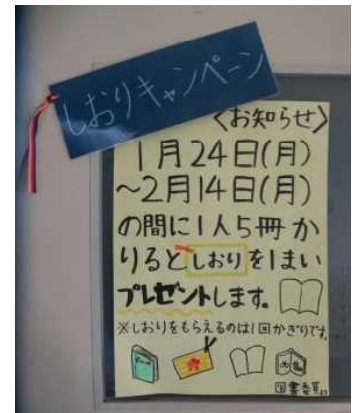 しおりキャンペーン
〈お知らせ〉
1月24日(月)
~2月14日(月)
の間に1人5冊か
りるとしおりを1まい
プレゼントします。
※しおりをもらえるのは1回かぎりです。
図書委員